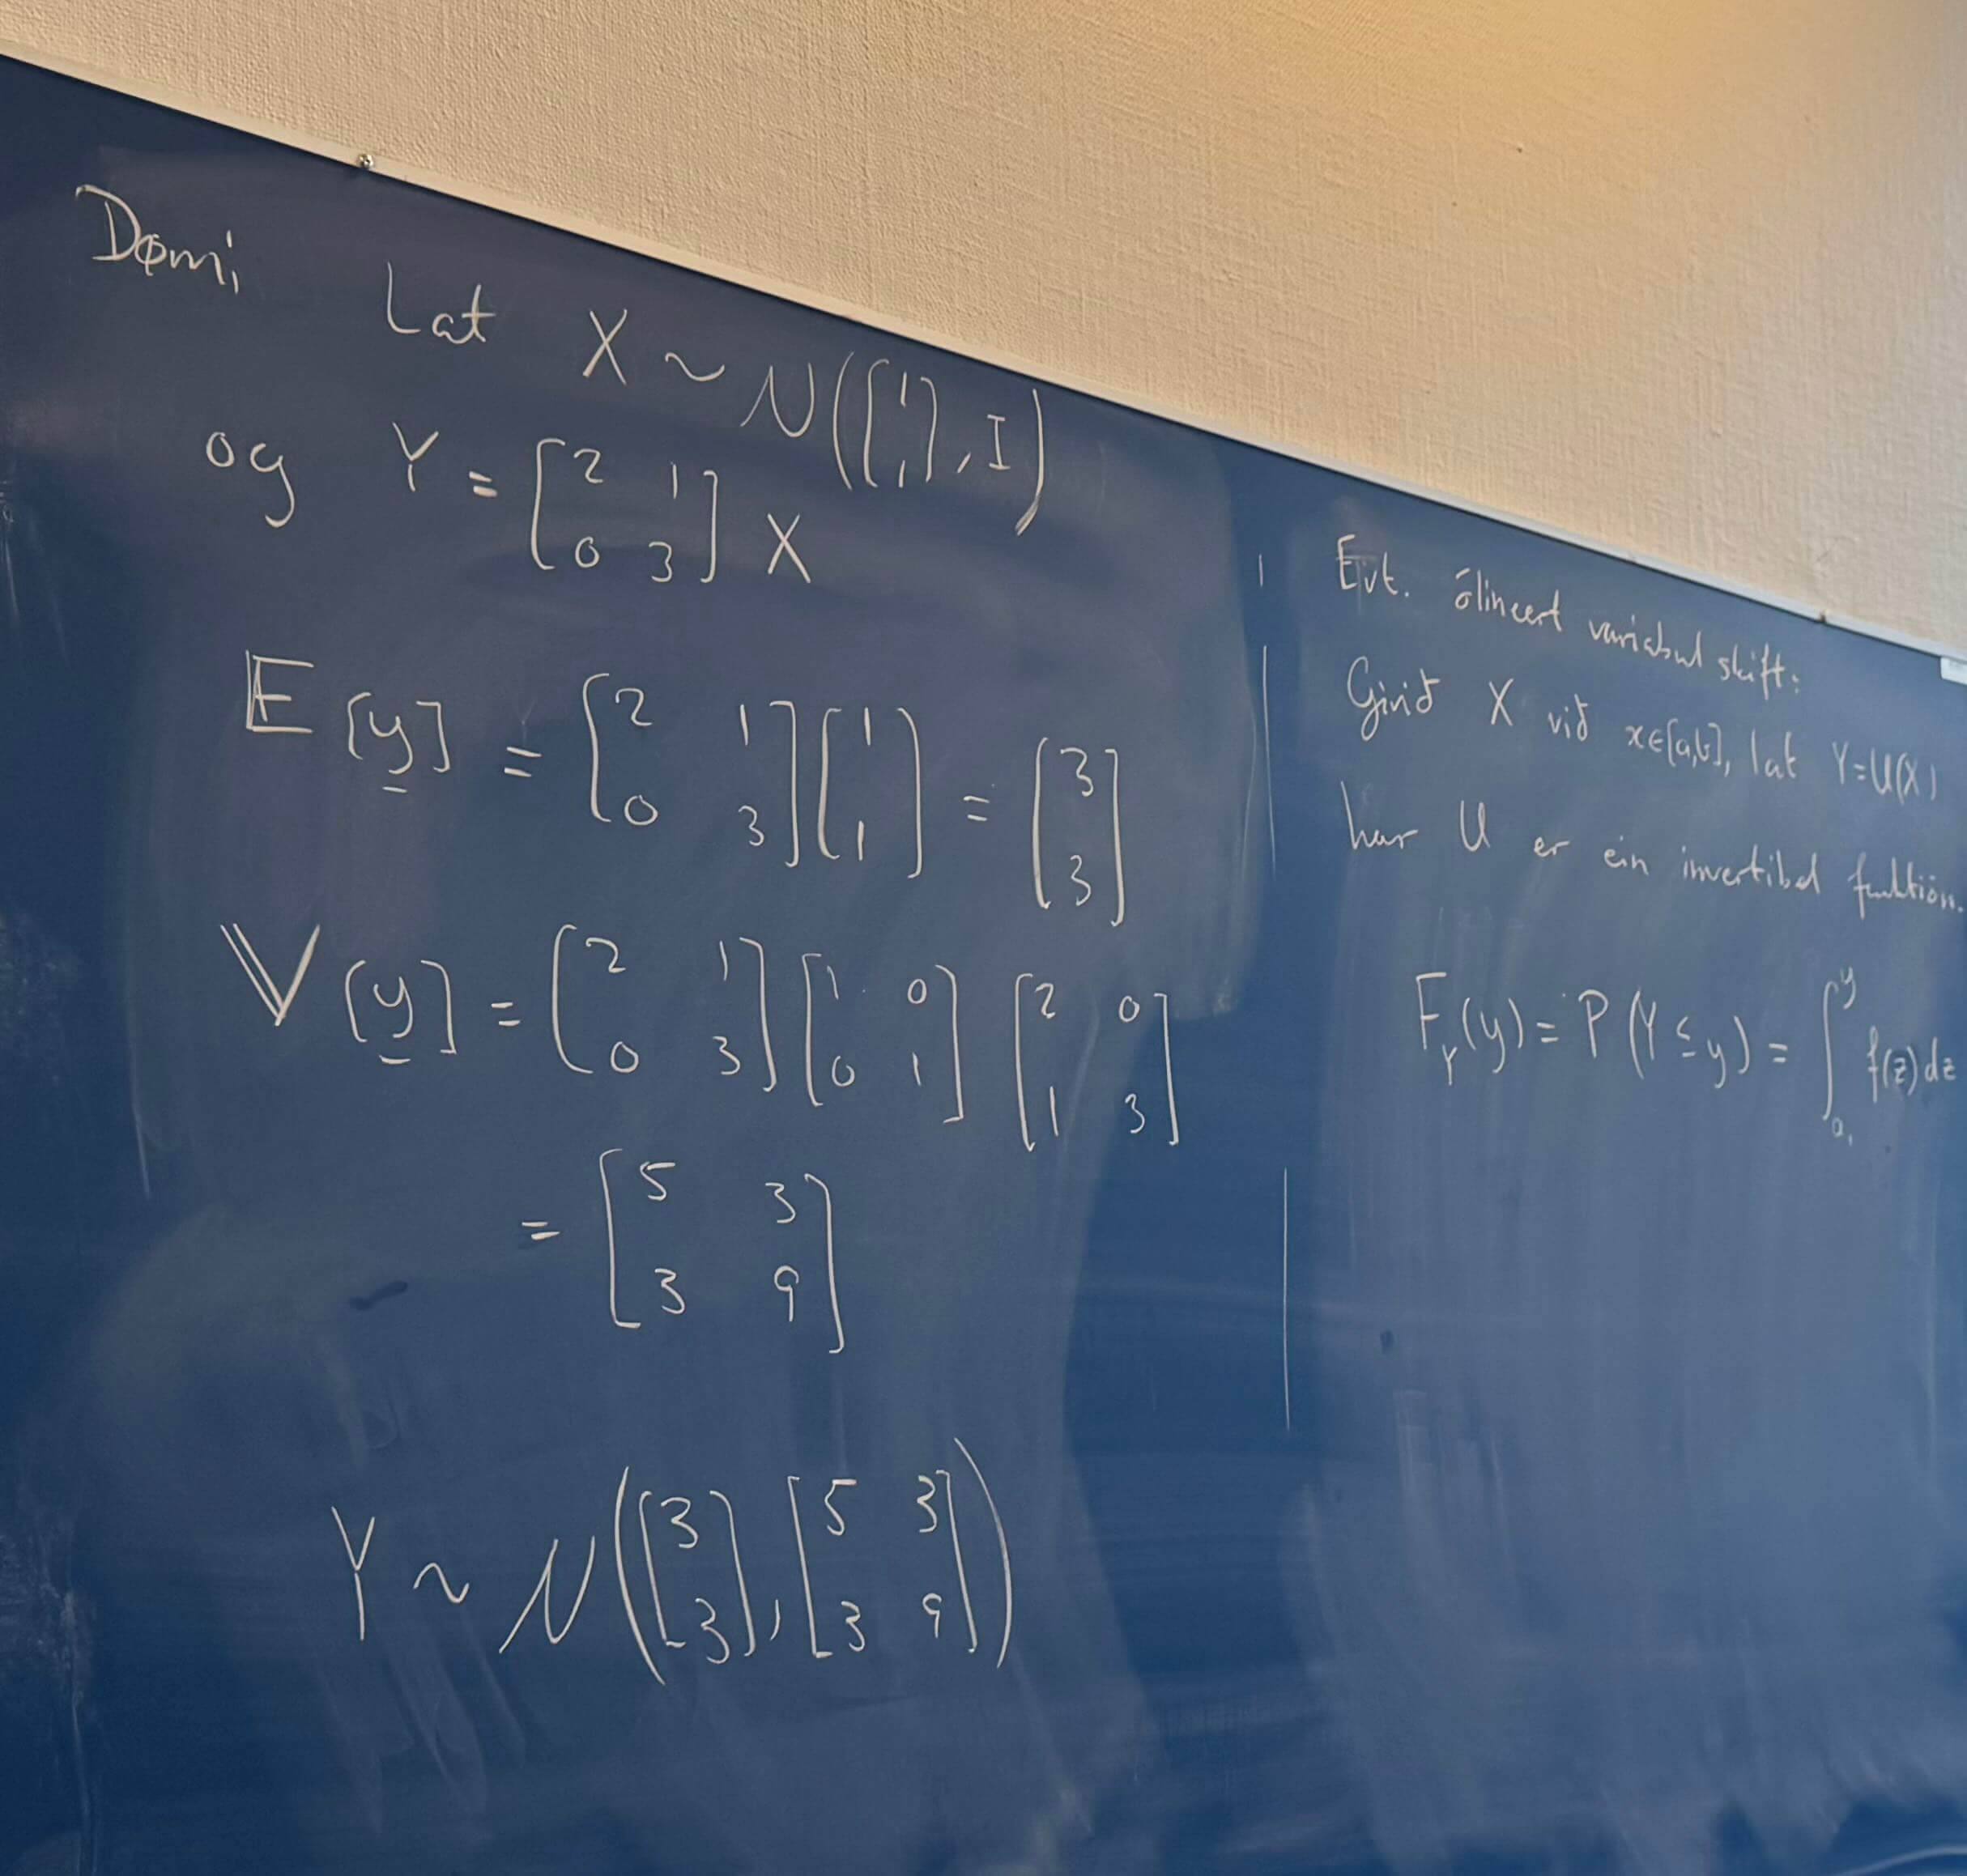 Dømi Lat X ~ N([1 1], I)
og Y = [2 1 0 3] X
E[y] = [2 1 0 3] [1 1] = [3 3]
V[y] = [2 1 0 3] [1 0 0 1] [2 0 1 3]
= [5 3 3 9]
Y ~ N([3 3], [5 3 3 9])
Evt. ólineert variabul skift:
Givið X við x∈[a,b], lat Y=U(X)
har U er ein invertibel funktión.
F_Y(y) = P(Y ≤ y) = ∫_a^y f(z)dz